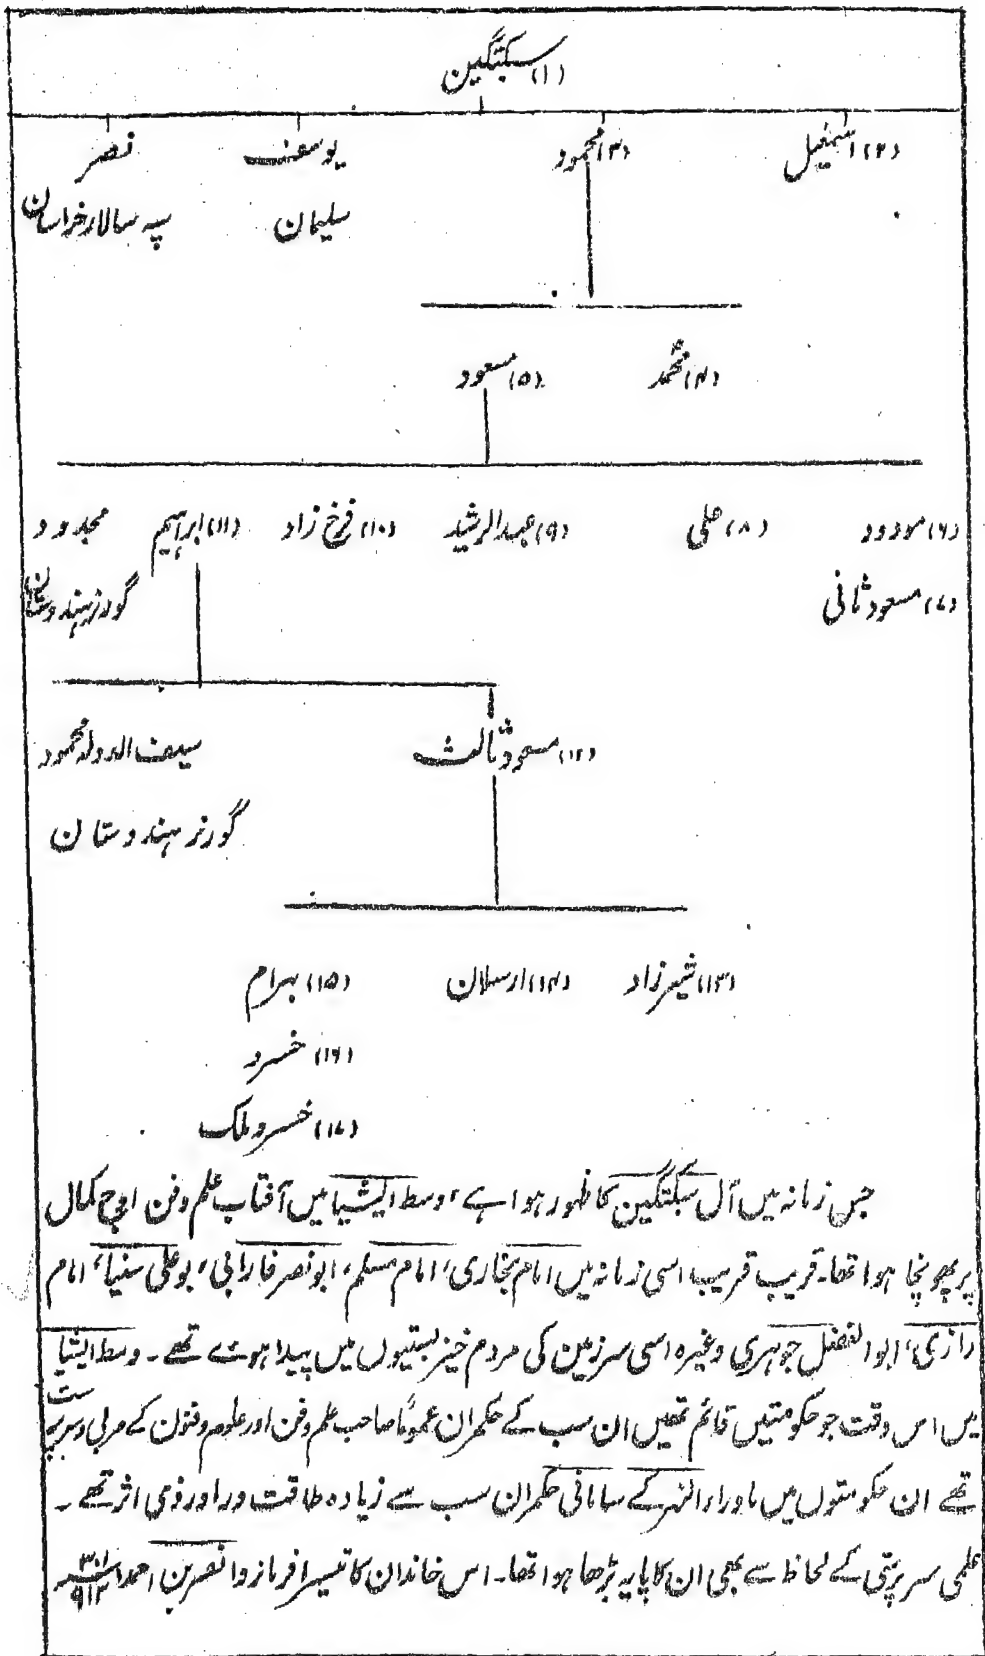 (۱) سبکتگین
(۲) اسمٰعیل (۳) محمود یوسف نصر
سلیمان سپہ سالار خراسان
(۴) محمد (۵) مسعود
(۶) مودود (۸) علی (۹) عبدالرشید (۱۰) فرخ زاد (۱۱) ابراہیم مجدود
(۷) مسعود ثانی گورنر ہندوستان
(۱۲) مسعود ثالث سیف الدولہ محمود
گورنر ہندوستان
(۱۳) شیر زاد (۱۴) ارسلان (۱۵) بہرام
(۱۶) خسرو
(۱۷) خسرو ملک
جس زمانہ میں آل سبکتگین کا ظہور ہوا ہے، وسط ایشیا میں آفتاب علم وفن اوج کمال
پر پھونچا ہوا تھا۔ قریب قریب اسی زمانہ میں امام بخاری، امام مسلم، ابو نصر فارابی، بو علی سینا، امام
رازی، ابو الفضل جوہری وغیرہ اسی سرزمین کی مردم خیز بستیوں میں پیدا ہوئے تھے۔ وسط ایشیا
میں اس وقت جو حکومتیں قائم تھیں ان سب کے حکمران عموماً صاحب علم وفن اور علوم وفنون کے مربی وسرپرست
تھے ان حکومتوں میں ماوراء النہر کے سامانی حکمران سب سے زیادہ طاقت ور اور ذی اثر تھے۔
علمی سرپرستی کے لحاظ سے بھی ان کا پایہ بڑھا ہوا تھا۔ اس خاندان کا تیسرا فرمانروا نصر بن احمد ۳۰۱ھ ۹۱۲